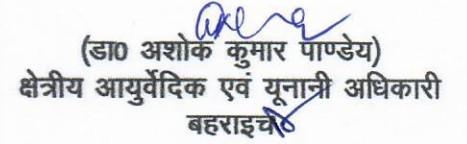 (डा0 अशोक कुमार पाण्डेय)
क्षेत्रीय आयुर्वेदिक एवं यूनानी अधिकारी
बहराइच